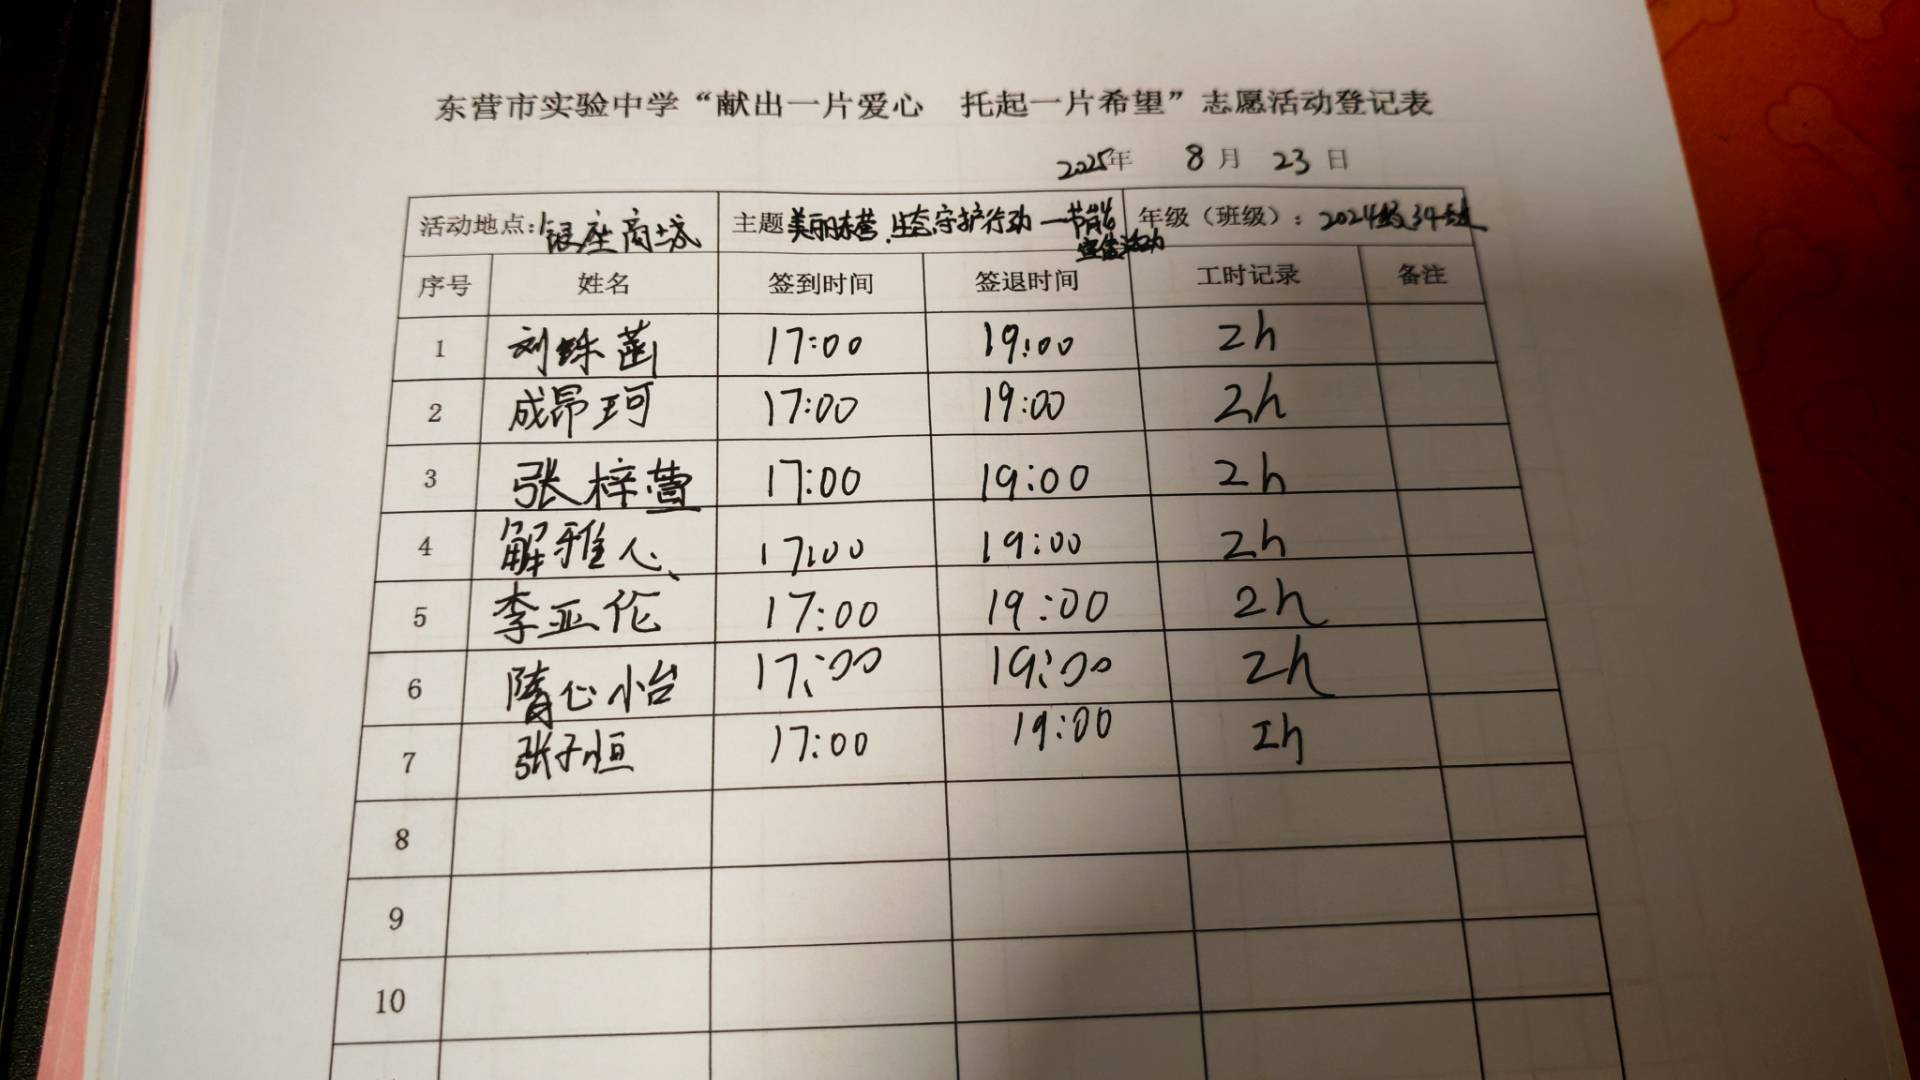 东营市实验中学“献出一片爱心 托起一片希望”志愿活动登记表
2025年 8月 23日
活动地点:银座商城 主题 美丽东营,生态守护行动—节能宣传活动 年级（班级）: 2024级34班
序号 姓名 签到时间 签退时间 工时记录 备注
1 刘 菡 17:00 19:00 2h
2 成昂珂 17:00 19:00 2h
3 张梓萱 17:00 19:00 2h
4 解雅人 17:00 19:00 2h
5 李亚伦 17:00 19:00 2h
6 隋心怡 17:00 19:00 2h
7 张子恒 17:00 19:00 2h
8
9
10